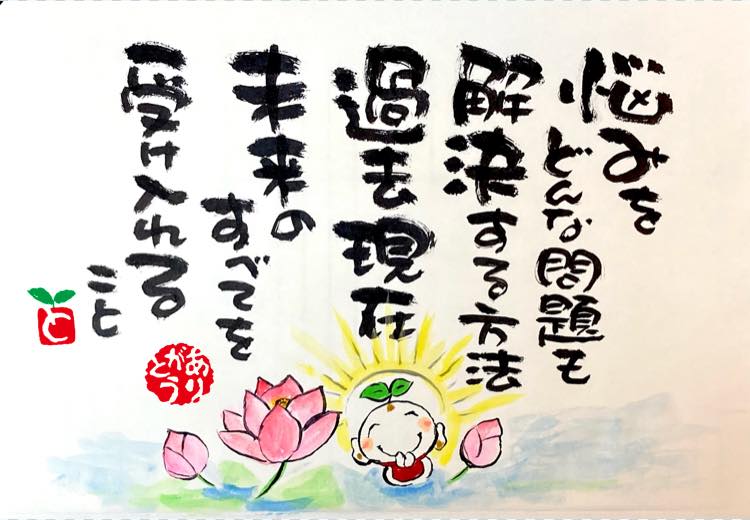 悩みを
どんな問題も
解決する方法
過去現在
未来の
すべてを
受け入れる
こと
ありがとう